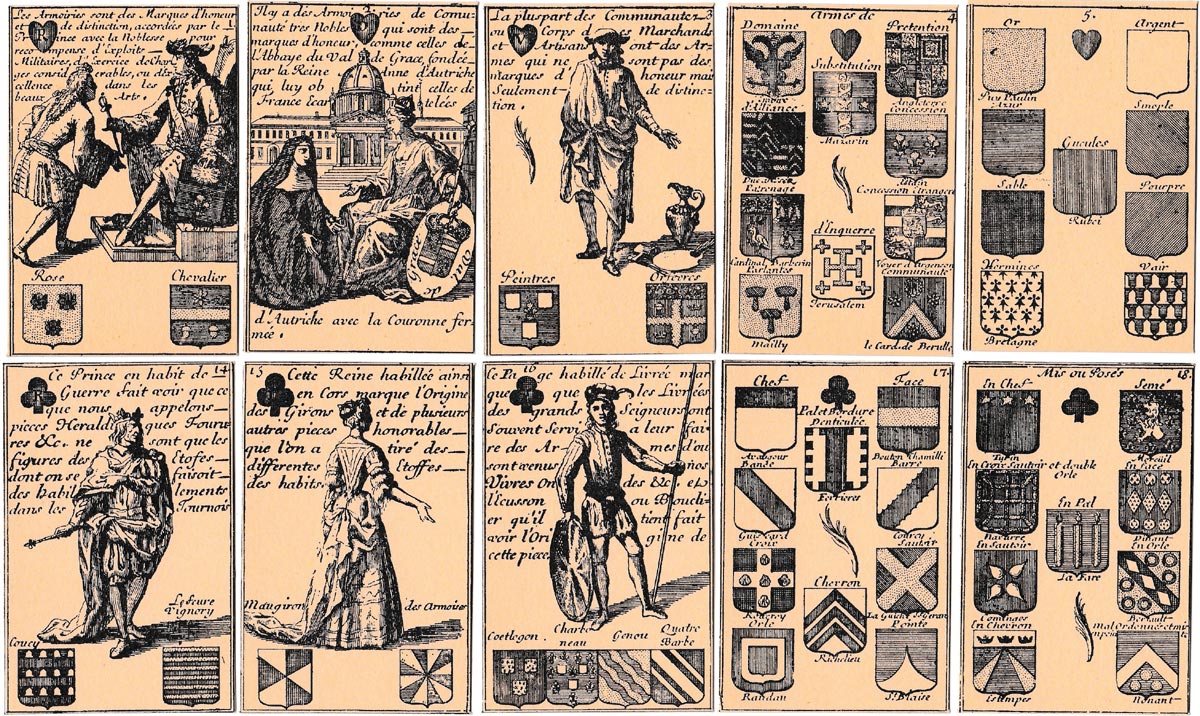 Les Armoiries sont des Marques d'honeur
et de distinction, accordées par le
Prince avec la Noblesse pour
recompense d'Exploits
Militaires, d'Exercice de charges considerables, ou d'Excellence dans les
beaux Arts.
R
Rose
Chevalier
Il y a des Armoiries de Comu-
nauté tres Nobles qui sont des
marques d'honeur, comme celles de
l'Abbaye du Val de Grace fondée
par la Reine Anne d'Autriche
qui luy obtint celles de
France écartelées
d'Autriche avec la Couronne fer-
mée.
La pluspart des Communautez 3
ou Corps des Marchands
et Artisans ont des Ar-
mes qui ne sont pas des
Marques d'honeur mais
Seulement de distinc-
tion.
Peintres
Orfevres
Armes de 4
Domaine
Pretention
Substitution
Empire
d'Alliance
Angleterre
Concession
Mazarin
Patronage
Concession Etrangere
d'Enquerre
Cardinal Barberin
Parlantes
Voyer d'Argenson
Communauté
Jerusalem
Mailly
le Card. de Berulle
5.
Or
Argent
Puy Paulin
Azur
Sinople
Gueules
Sable
Pourpre
Rubei
Hermines
Vair
Bretagne
Ce Prince en habit de 14
Guerre fait voir que ce
que nous appelons
pieces Heraldiques Fourures
&c. ne sont que les
figures des Etofes
dont on se faisoit
des habillements
dans les Tournois
R
Lefeure
Vignory
Coucy
15
Cette Reine habillée ainsi
en Cors marque l'Origine
des Girons et de plusieurs
autres pieces honorables
que l'on a tiré des
differentes Etoffes
des habits
Maugiron
des Armoises
16
Ce Page habillé de Livrée mar
que que les Livrées
des grands Seigneurs ont
Souvent Servi a leur fai
re des Armes d'ou
sont venus
Vivres On des &c et
l'Ecusson ou Boucli-
er qu'il tient fait
voir l'Origine de
cette piece
Coetlogon
Charbonneau
Genou
Quatre
Barbe
17
Chef
Face
Pal et Bordure
Denticulée
Bande
Barre
Ferrieres
Croix
Coucy
Sautoir
Chevron
Orle
Pointe
Richelieu
Randau
St. Blaise
Mis ou Posés 18
En Chef
Semé
Turin
En Croix Sautoir et double
Orle
En Face
En Pal
Navarre
En Sautoir
En Orle
La Fare
Cominges
En Chevron
Estampes
Nonant